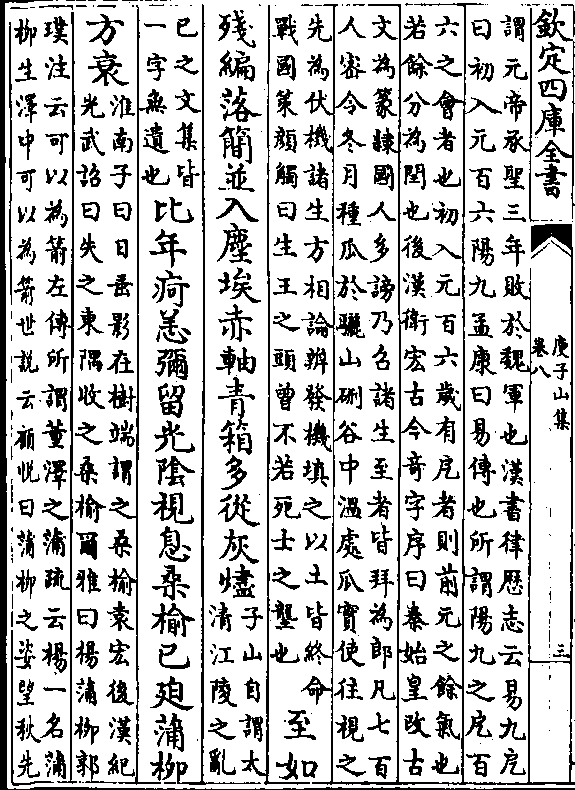 欽定四庫全書
庾子山集
卷八
三
謂元帝承聖三年敗於魏軍也漢書律歷志云易九戹
曰初入元百六陽九孟康曰易傳也所謂陽九之戹百
六之會者也初入元百六歲有戹者則前元之餘氣也
若餘分為閏也後漢衛宏古今奇字序曰秦始皇改古
文為篆隷國人多謗乃召諸生至者皆拜為郎凡七百
人密令冬月種瓜於驪山硎谷中溫處瓜實使往視之
先為伏機諸生方相論辨發機填之以土皆終命
戰國策顏觸曰生王之頭曾不若死士之壟也
至如
殘編落簡並入塵埃赤軸青箱多從灰燼
子山自謂太
清江陵之亂
已之文集皆
一字無遺也
比年疴恙彌留光陰視息桑榆已迫蒲柳
方衰
淮南子曰日垂影在樹端謂之桑榆袁宏後漢紀
光武詔曰失之東隅收之桑榆爾雅曰楊蒲柳郭
璞注云可以為箭左傳所謂董澤之蒲疏云楊一名蒲
柳生澤中可以為箭世說云顧悅曰蒲柳之姿望秋先